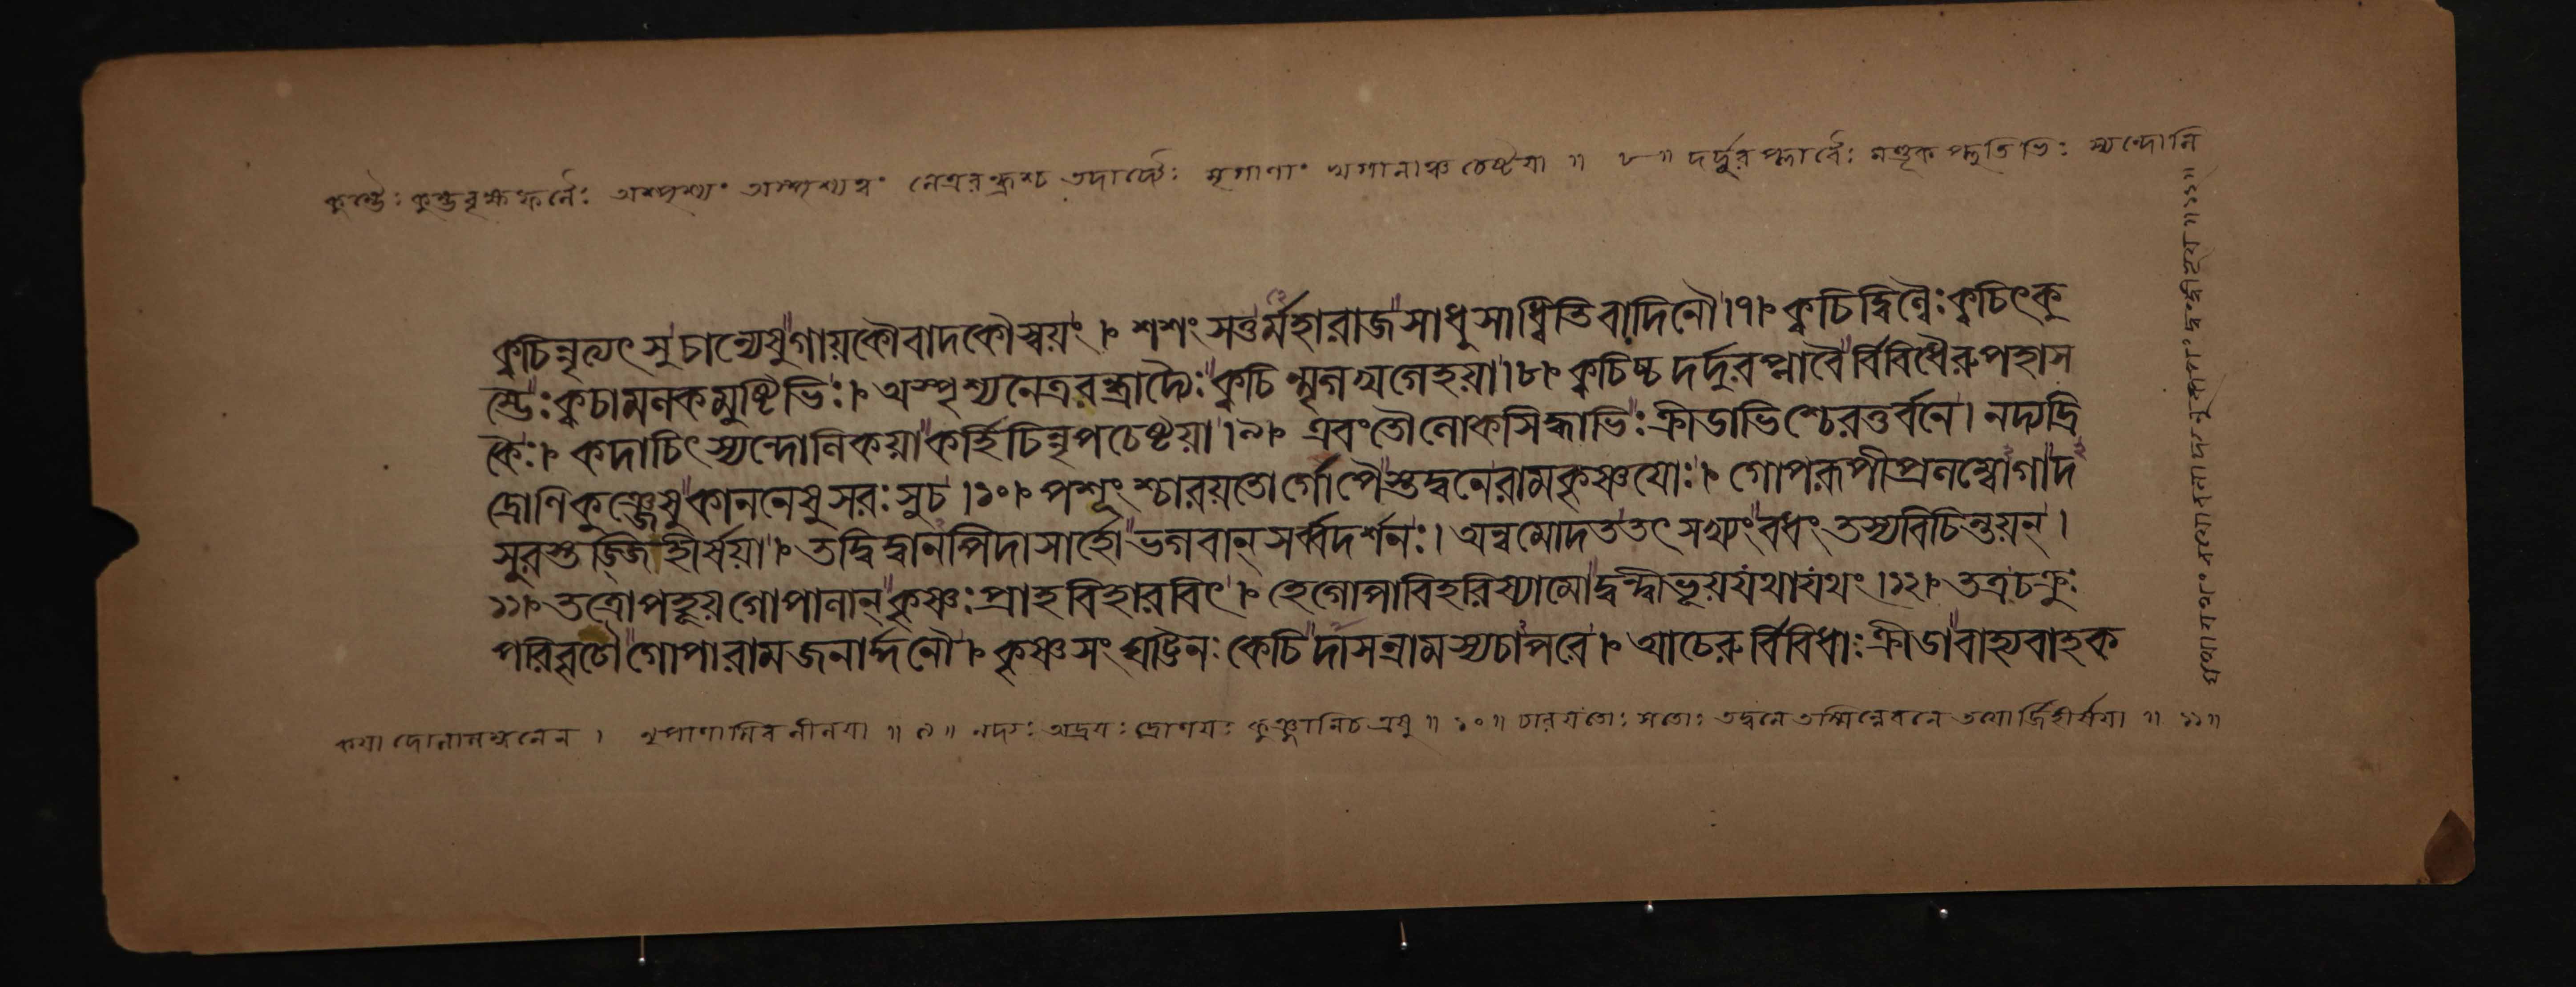 কুম্ভৈঃ কুম্ভবৃক্ষফলৈঃ অস্পৃশ্যং অস্পৃশ্যত্বং নেত্রবন্ধশ্চ তদাদ্যৈঃ মৃগাণাং খগানাঞ্চ চেষ্টয়া ॥ ৮ ॥ দর্দ্দুরপ্লাবৈঃ মণ্ডূকপ্লুতিভিঃ স্যন্দোলি
ক্বচিন্নৃত্যৎসুচান্যেষুগায়কৌবাদকৌস্বয়ং । শশংসতুর্মহারাজসাধুসাধ্বিতিবাদিনৌ।৭। ক্বচিদ্বিল্বৈঃক্বচিৎকু
ম্ভৈঃক্বচামলকমুষ্টিভিঃ। অস্পৃশ্যনেত্রবন্ধাদ্যৈঃক্বচিন্মৃগখগেহয়া।৮। ক্বচিচ্চদর্দ্দুরপ্লাবৈর্বিবিধৈরুপহাস
কৈঃ। কদাচিৎস্যন্দোলিকয়াকর্হিচিন্নৃপচেষ্টয়া।৯। এবংতৌলোকসিদ্ধাভিঃক্রীডাভিশ্চেরতুর্বনে। নদ্যদ্রি
দ্রোণিকুঞ্জেষুকাননেষুসরঃসুচ।১০। পশূংশ্চারয়তোর্গোপৈস্তদ্বনেরামকৃষ্ণয়োঃ। গোপরূপীপ্রলম্বোগাদ
সুরস্তজ্জিহীর্ষয়া। তদ্বিদ্বানপিদাসার্হোভগবান্সর্ব্বদর্শনঃ। অন্বমোদততৎসখ্যংবধংতস্যবিচিন্তয়ন্।
১১। তত্রোপহূয়গোপালান্কৃষ্ণঃপ্রাহবিহারবিৎ। হেগোপাবিহরিষ্যামোদ্বন্দ্বীভূয়যথাযথং।১২। তত্রচক্রুঃ
পরিবৃঢৌগোপারামজনার্দ্দনৌ। কৃষ্ণসংঘট্টিনঃকেচিদাসন্রামস্যচাপরে। আচেরুর্বিবিধাঃক্রীডাবাহ্যবাহক
কয়া দোলাবলম্বনেন । নৃপাণামিব লীলয়া ॥ ৯ ॥ নদ্যঃ অদ্রয়ঃ দ্রোণয়ঃ কুঞ্জানিচ এষু ॥ ১০ ॥ চারয়তোঃ সতোঃ তদ্বনে তস্মিন্নেববনে তয়োর্জিহীর্ষয়া ॥ ১১ ॥